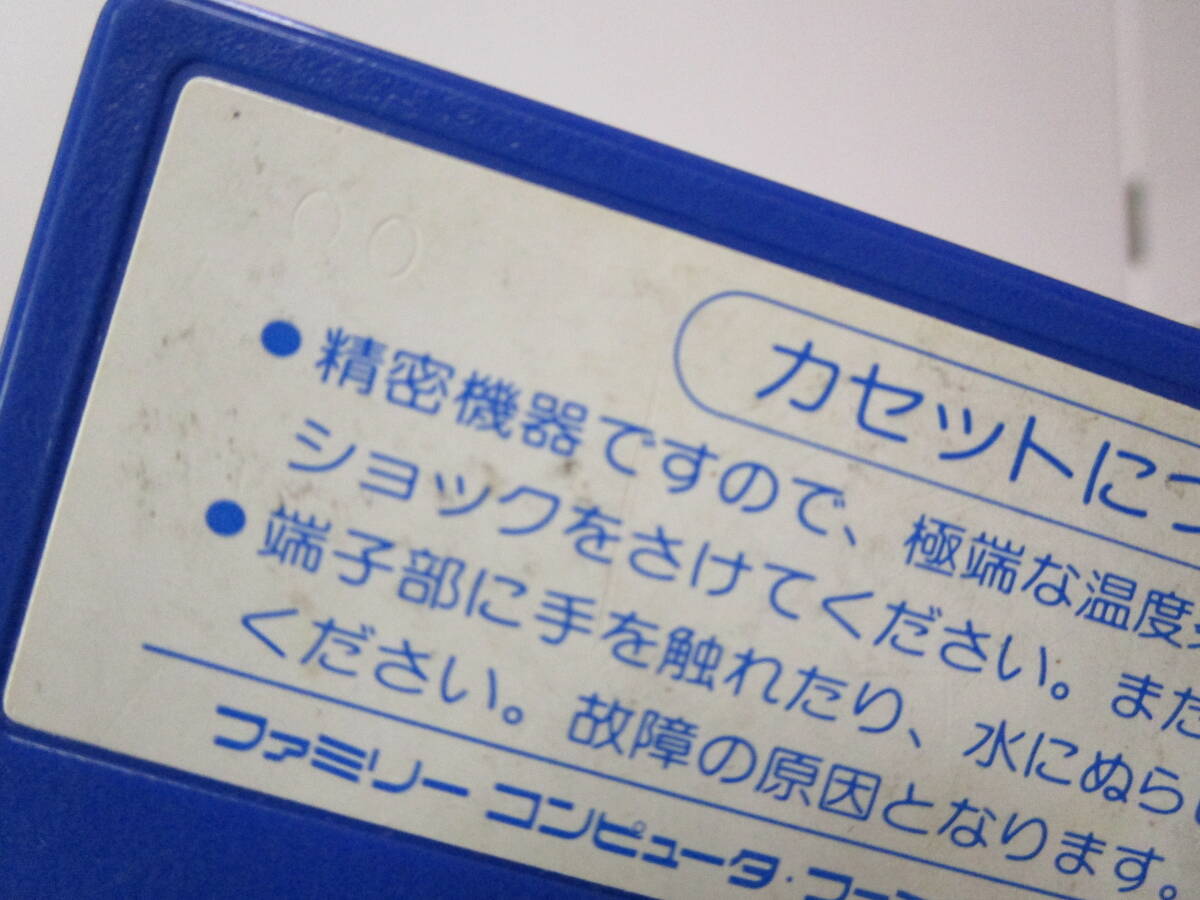 カセットにつ
●精密機器ですので、極端な温度
ショックをさけてください。また
●端子部に手を触れたり、水にぬら
ください。故障の原因となります。
ファミリー コンピュータ・